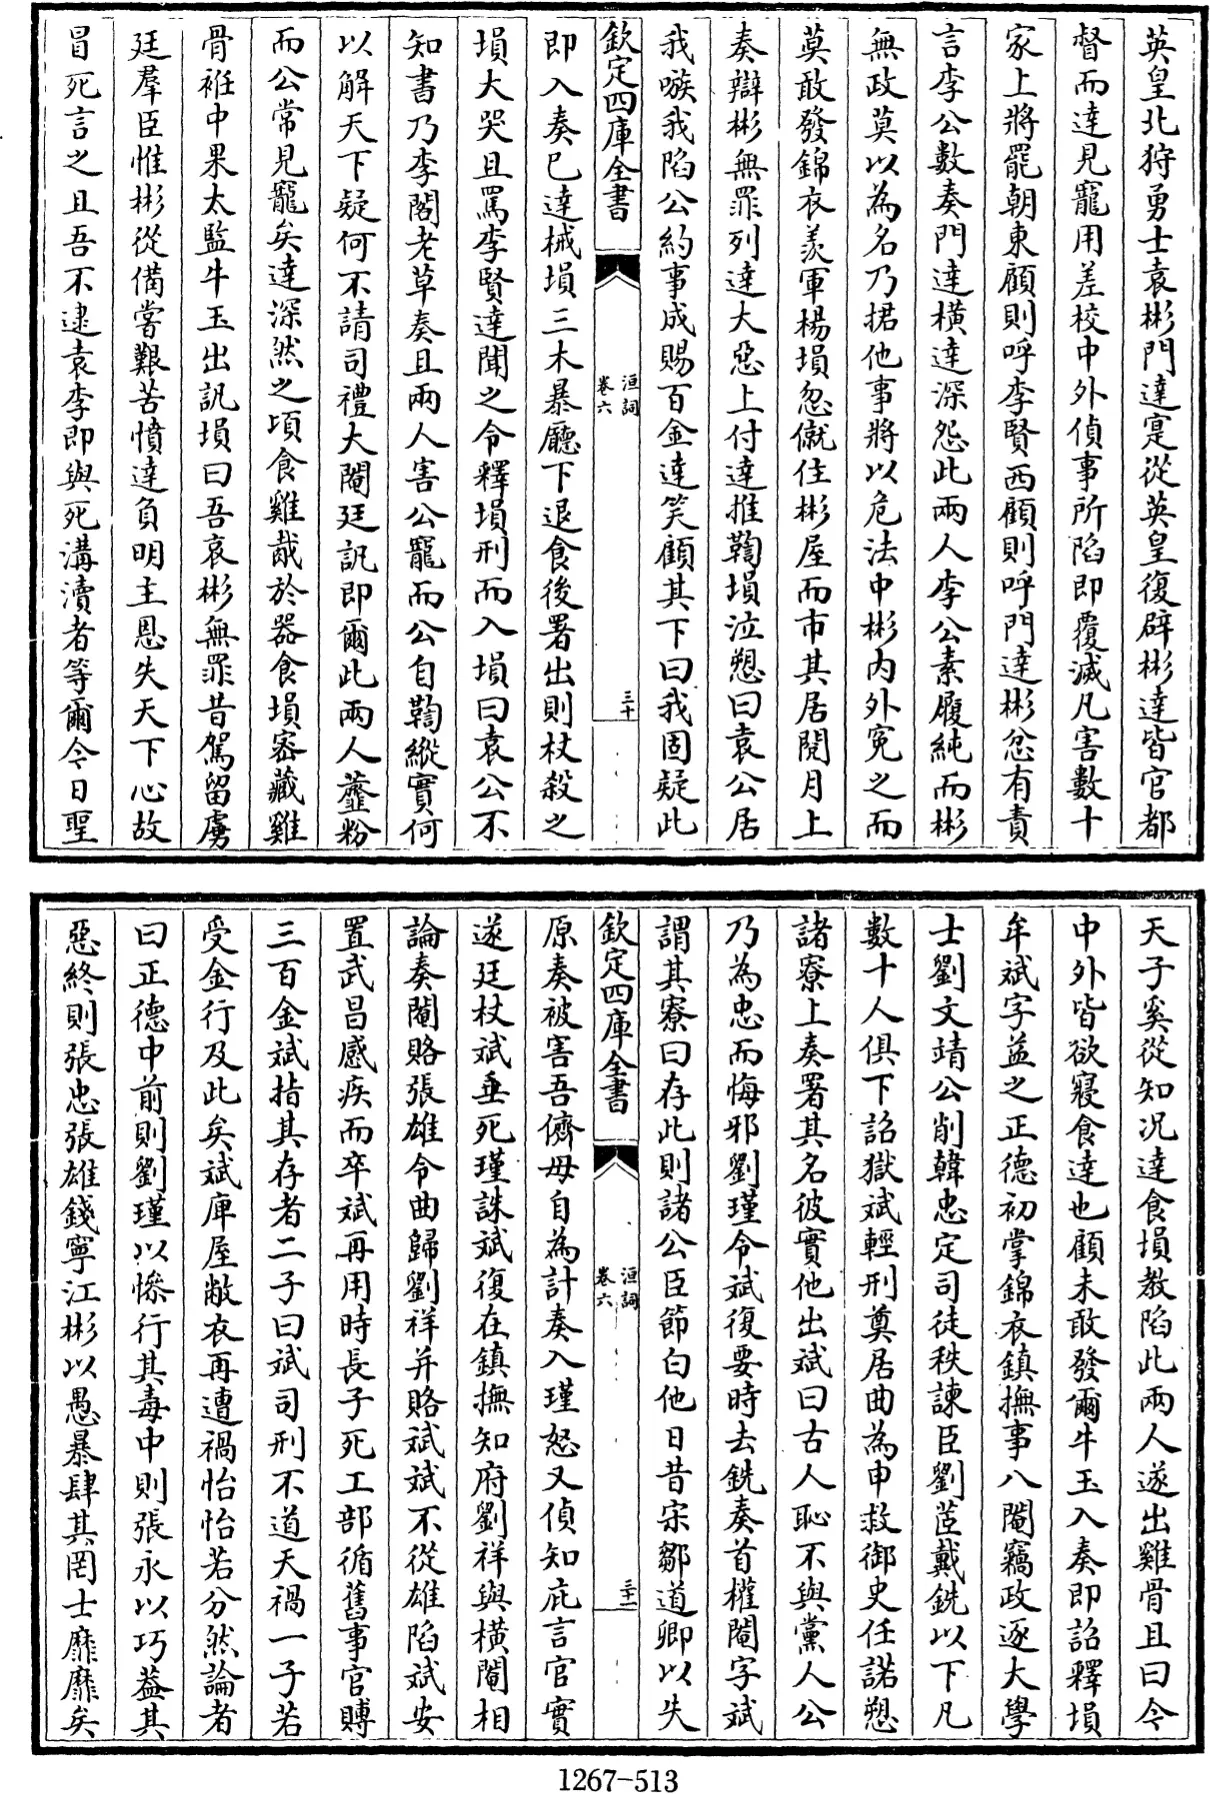 英皇北狩勇士袁彬門達寔從英皇復辟彬達皆官都
督而達見寵用差校中外偵事所陷即覆滅凡害數十
家上將罷朝東顧則呼李賢西顧則呼門達彬忿有責
言李公數奏門達橫達深怨此兩人李公素履純而彬
無政莫以為名乃捃他事將以危法中彬内外寃之而
莫敢發錦衣羡軍楊塤忽僦住彬屋而市其居閱月上
奏辯彬無罪列達大惡上付達推鞫塤泣愬曰袁公居
我嗾我陷公約事成賜百金達笑顧其下曰我固疑此
欽定四庫全書
洹詞
卷六
三十
即入奏巳達械塤三木暴廳下退食後署出則杖殺之
塤大哭且罵李賢達聞之令釋塤刑而入塤曰袁公不
知書乃李閣老草奏且兩人害公寵而公自鞫縱實何
以解天下疑何不請司禮大閹廷訊即爾此兩人虀粉
而公常見寵矣達深然之頃食雞胾於器食塤密藏雞
骨袵中果太監牛玉出訊塤曰吾哀彬無罪昔駕留虜
廷羣臣惟彬從備嘗艱苦憤達負明主恩失天下心故
冒死言之且吾不逮袁李即與死溝瀆者等爾今日聖
天子奚從知况達食塤教陷此兩人遂出雞骨且曰今
中外皆欲寢食達也顧未敢發爾牛玉入奏即詔釋塤
牟斌字益之正德初掌錦衣鎮撫事八閹竊政逐大學
士劉文靖公削韓忠定司徒秩諫臣劉茝戴銑以下凡
數十人俱下詔獄斌輕刑奠居曲為申救御史任諾愬
諸寮上奏署其名彼實他出斌曰古人恥不與黨人公
乃為忠而悔邪劉瑾令斌復要時去銑奏首權閹字斌
謂其寮曰存此則諸公臣節白他日昔宋鄒道卿以失
欽定四庫全書
洹詞
卷六
三十一
原奏被害吾儕毋自為計奏入瑾怒又偵知庇言官實
遂廷杖斌垂死瑾誅斌復在鎮撫知府劉祥與橫閹相
論奏閹賂張雄令曲歸劉祥并賂斌斌不從雄陷斌安
置武昌感疾而卒斌再用時長子死工部循舊事官賻
三百金斌指其存者二子曰斌司刑不道天禍一子若
受金行及此矣斌庫屋敝衣再遭禍怡怡若分然論者
曰正德中前則劉瑾以慘行其毒中則張永以巧葢其
惡終則張忠張雄錢寧江彬以愚暴肆其罔士靡靡矣
1267-513